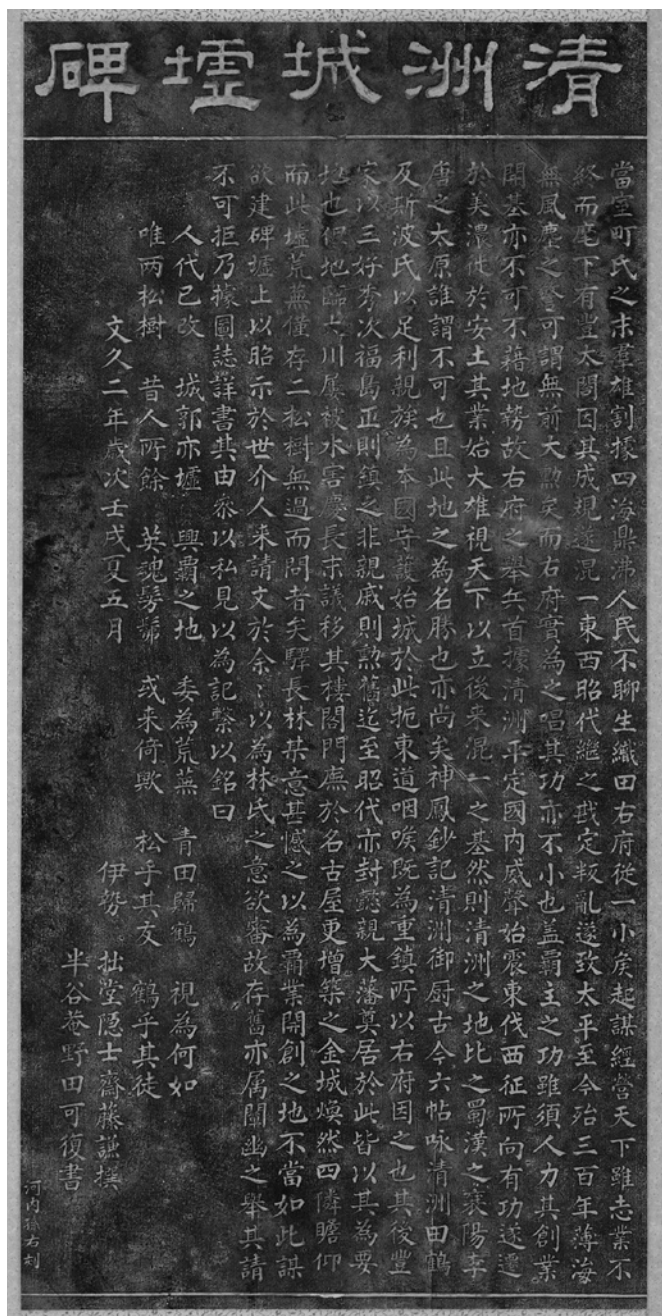 清洲城墟碑
當室町氏之末羣雄割據四海鼎沸人民不聊生織田右府從一小矦起謀經營天下雖志業不
終而麾下有豐太閤因其成規遂混一東西昭代繼之戡定叛亂遂致太平至今殆三百年薄海
無風塵之警可謂無前大勲矣而右府實為之唱其功亦不小也盖霸主之功雖須人力其創業
開基亦不可不藉地勢故右府之舉兵首據清洲平定國内威聲始震東伐西征所向有功遂遷
於美濃徙於安土其業始大雄視天下以立後来混一之基然則清洲之地比之蜀漢之襄陽李
唐之太原誰謂不可也且此地之為名勝也亦尚矣神鳳鈔記清洲御厨古今六帖咏清洲田鶴
及斯波氏以足利親族為本國守護始城於此扼東道咽喉既為重鎮所以右府因之也其後豐
家以三好秀次福島正則鎮之非親戚則勲舊迄至昭代亦封懿親大藩奠居於此皆以其為要
地也但地臨大川屡被水害慶長末議移其樓閣門廡於名古屋更增築之金城煥然四隣瞻仰
而此墟荒蕪僅存二松樹無過而問者矣驛長林某意甚憾之以為霸業開創之地不當如此謀
欲建碑墟上以昭示於世介人来請文於余〻以為林氏之意欲審故存舊亦属闡幽之舉其請
不可拒乃據圖誌詳書其由参以私見以為記繋以銘曰
人代已改 城郭亦墟 興霸之地 委為荒蕪 青田歸鶴 視為何如
唯兩松樹 昔人所餘 英魂髣髴 或来倚歟 松乎其友 鶴乎其徒
文久二年歳次壬戌夏五月 伊勢 拙堂隠士齋藤謙撰
半谷菴野田可復書
河内孫右刻